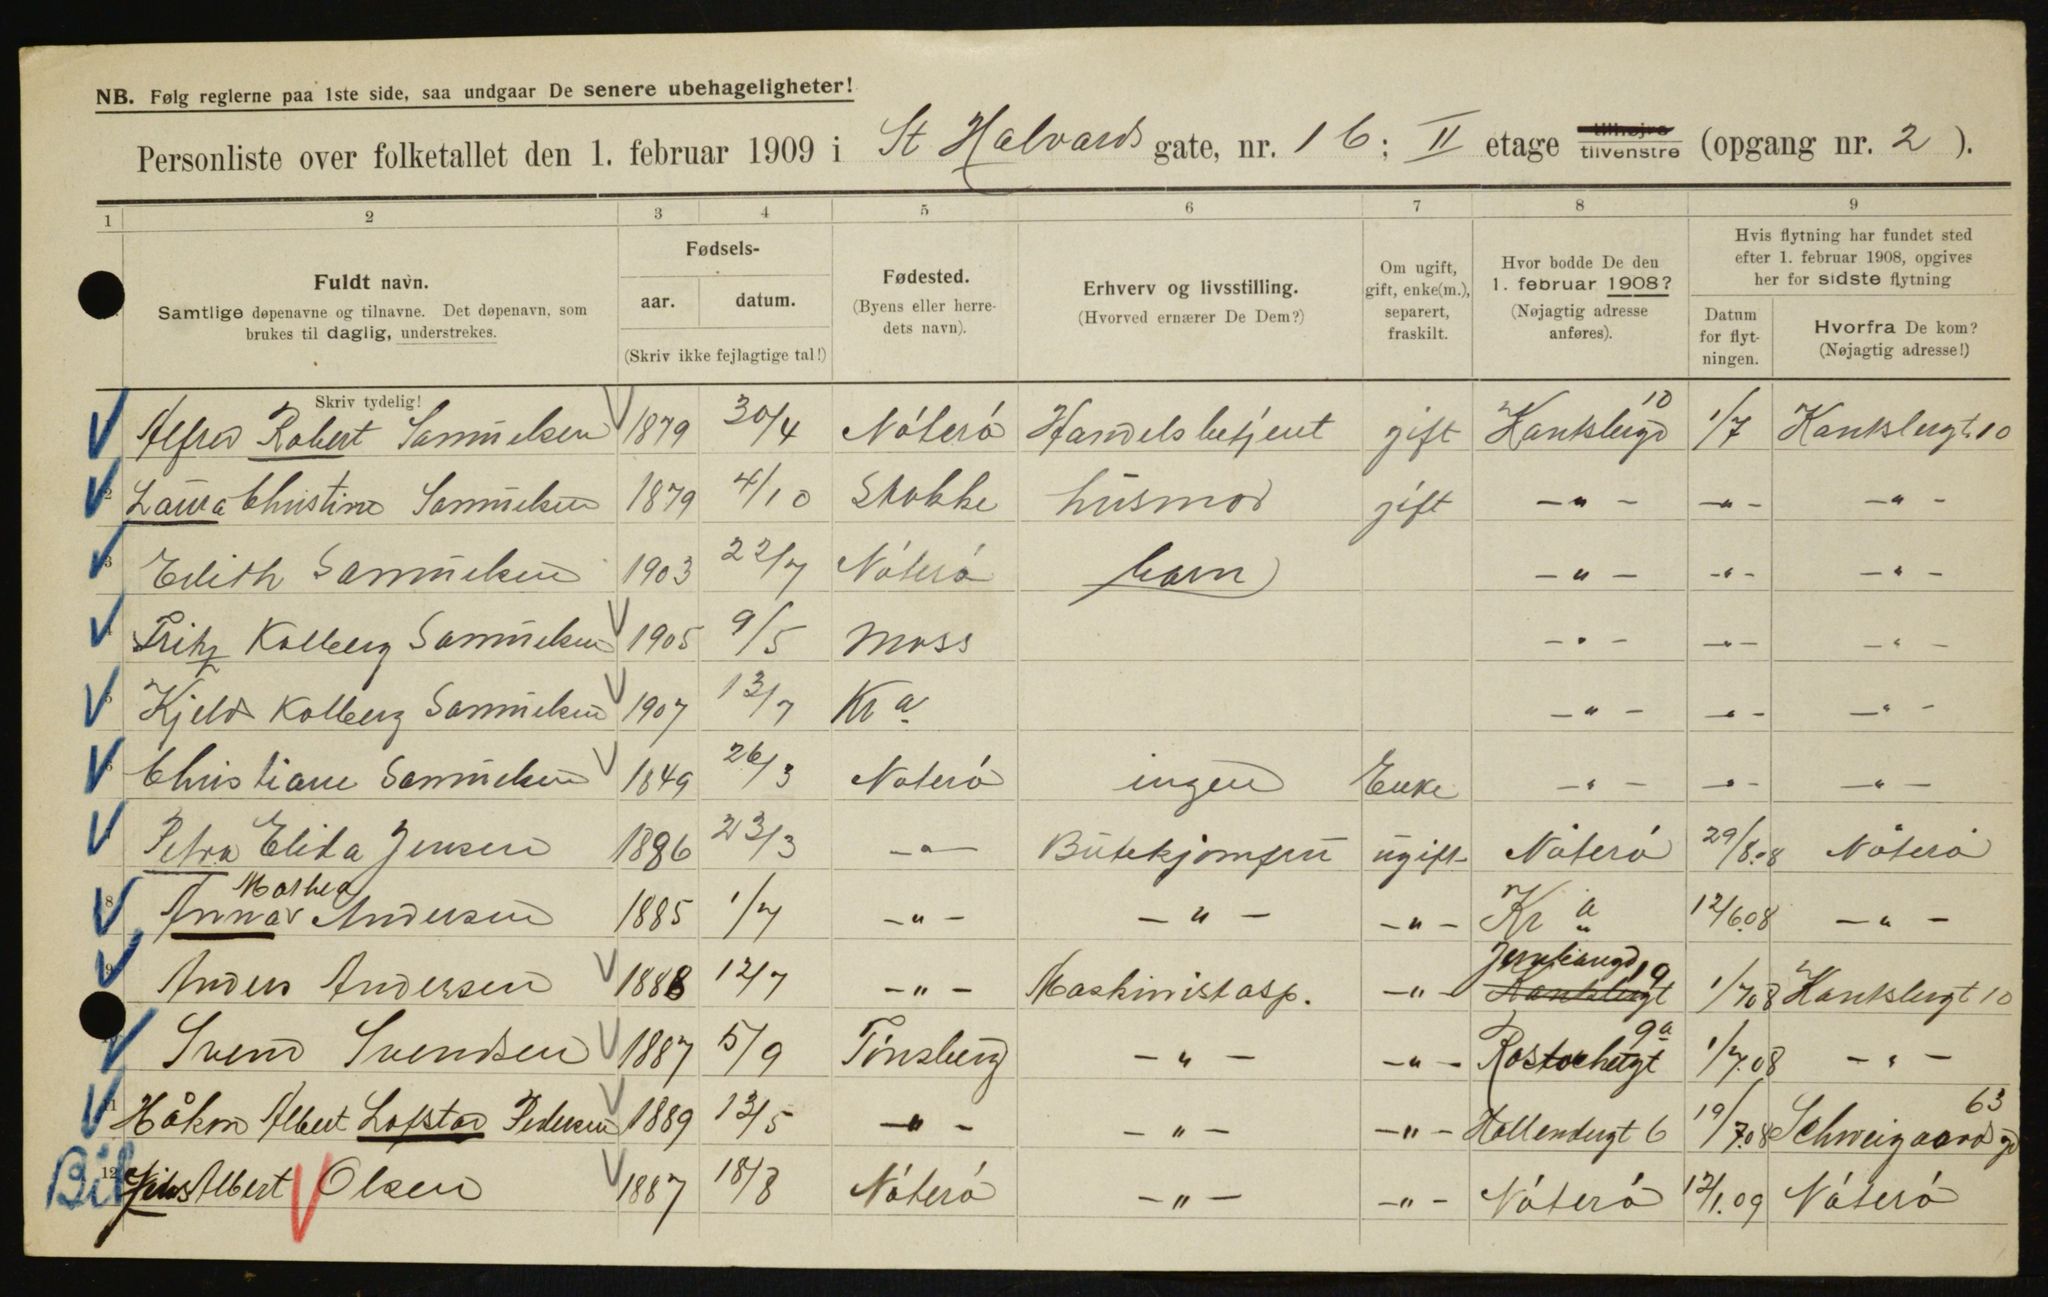 NB. Følg reglerne paa 1ste side, saa undgaar De senere ubehageligheter!
Personliste over folketallet den 1. februar 1909 i St Halvards gate, nr. 16; II etage tilhøjre tilvenstre (opgang nr. 2 ).
1 2 3 4 5 6 7 8 9
Fuldt navn.
Samtlige døpenavne og tilnavne. Det døpenavn, som
brukes til daglig, understrekes.
Skriv tydelig!
Fødsels-
aar. datum.
(Skriv ikke fejlagtige tal!)
Fødested.
(Byens eller herre-
dets navn).
Erhverv og livsstilling.
(Hvorved ernærer De Dem?)
Om ugift,
gift, enke(m.),
separert,
fraskilt.
Hvor bodde De den
1. februar 1908?
(Nøjagtig adresse
anføres).
Hvis flytning har fundet sted
efter 1. februar 1908, opgives
her for sidste flytning
Datum
for flyt-
ningen.
Hvorfra De kom?
(Nøjagtig adresse!)
Alfred Robert Samuelsen 1879 30/4 Nøterø Handelsbetjent gift 10 1/7 10
2 Laura Christine Samuelsen 1879 4/10 Stokke husmod gift -"- -"- -"-
3 Edith Samuelsen 1903 22/7 Nøterø barn -"- -"- -"-
4 Fritz Kolberg Samuelsen 1905 9/5 Moss -"- -"- -"-
5 Kjeld Kolberg Samuelsen 1907 13/7 Kra -"- -"- -"-
6 Christiane Samuelsen 1849 26/3 Nøterø ingen Enke -"- -"- -"-
Petra Elida Jensen 1886 23/3 -"- Butikjomfru ugift Nøterø 29/8.08 Nøterø
8 Anna Mathea Andersen 1885 1/7 -"- -"- -"- Kra 12/6.08 -"-
9 Anders Andersen 1888 12/7 -"- Maskinistasp. -"- 19 1/7.08 10
Svend Svendsen 1887 5/9 Tønsberg -"- -"- Rostockergt 9a 1/7.08 -"-
11 Håkon Albert Lofstad Pedersen 1889 13/5 -"- -"- -"- Hollendergt 6 19/7.08 Schweigaardsgd 63
Bil
12 Jens Albert Olsen 1887 18/8 Nøterø -"- -"- Nøterø 12/1.09 Nøterø